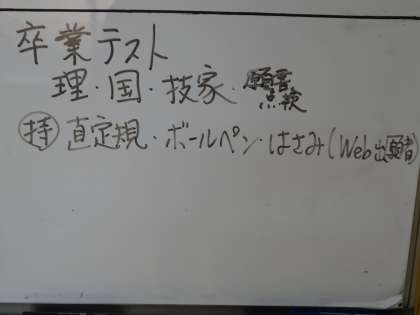 卒業テスト
理・国・技家・願書点検
持 直定規・ボールペン・はさみ(Web出願者)